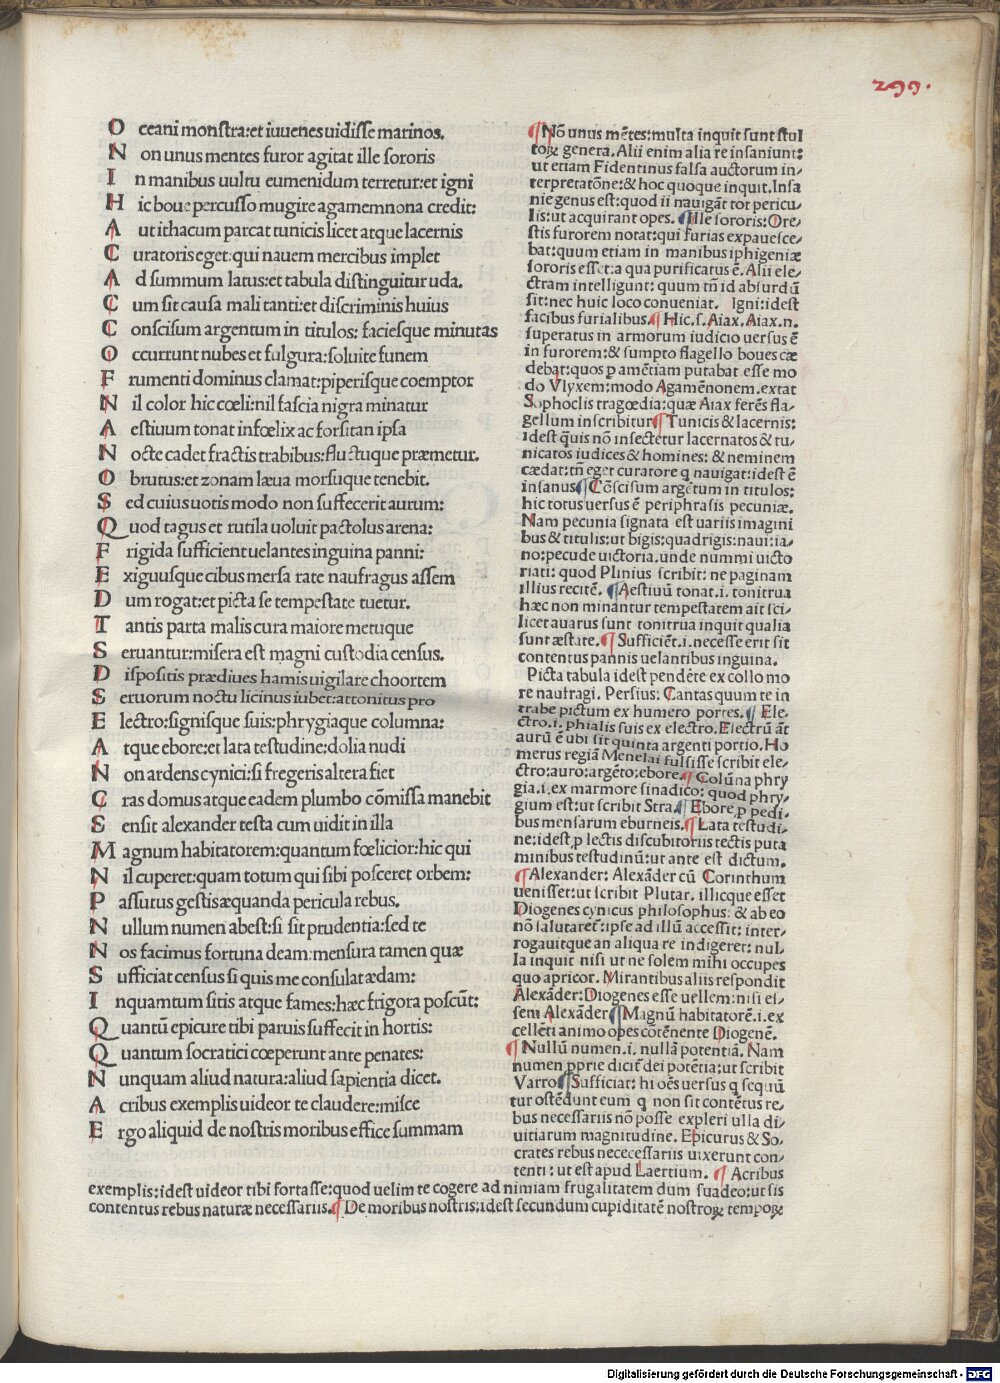 299.
O ceani monſtra:et iuuenes uidiſſe marinos.
N on unus mentes furor agitat ille ſororis
I n manibus uultu eumenidum terretur:et igni
H ic boue percuſſo mugire agamemnona credit:
A ut ithacum parcat tunicis licet atque lacernis
C uratoris eget:qui nauem mercibus implet
A d ſummum latus:et tabula diſtinguitur uda.
C um ſit cauſa mali tanti:et diſcriminis huius
C onſciſum argentum in titulos: facieſque minutas
O ccurrunt nubes et fulgura:ſoluite funem
F rumenti dominus clamat:piperiſque coemptor
N il color hic cœli:nil faſcia nigra minatur
A eſtiuum tonat infœlix ac forſitan ipſa
N octe cadet fractis trabibus:fluctuque præmetur.
O brutus:et zonam læua morſuque tenebit.
S ed cuius uotis modo non ſuffecerit aurum:
Q uod tagus et rutila uoluit pactolus arena:
F rigida ſufficient uelantes inguina panni:
E xiguuſque cibus merſa rate naufragus aſſem
D um rogat:et picta ſe tempeſtate tuetur.
T antis parta malis cura maiore metuque
S eruantur:miſera eſt magni cuſtodia cenſus.
D iſpoſitis prædiues hamis uigilare choortem
S eruorum noctu licinus iubet:attonitus pro
E lectro:ſigniſque ſuis:phrygiaque columna:
A tque ebore:et lata teſtudine:dolia nudi
N on ardens cynici:ſi fregeris altera fiet
C ras domus atque eadem plumbo cōmiſſa manebit
S enſit alexander teſta cum uidit in illa
M agnum habitatorem:quantum fœlicior:hic qui
N il cuperet:quam totum qui ſibi poſceret orbem:
P aſſurus geſtis æquanda pericula rebus.
N ullum numen abeſt:ſi ſit prudentia:ſed te
N os facimus fortuna deam:menſura tamen quæ
S ufficiat cenſus ſi quis me conſulat ædam:
I nquamtum ſitis atque fames:hæc frigora poſcūt:
Q uantū epicure tibi paruis ſuffecit in hortis:
Q uantum ſocratici cœperunt ante penates:
N unquam aliud natura:aliud ſapientia dicet.
A cribus exemplis uideor te claudere:miſce
E rgo aliquid de noſtris moribus effice ſummam
¶ Nō unus mētes:multa inquit ſunt ſtul
toꝝ genera. Alii enim alia re inſaniunt:
ut etiam Fidentinus falſa auctorum in-
terpretatōne:& hoc quoque inquit. Inſa
nie genus eſt:quod ii nauigāt tot pericu-
lis:ut acquirant opes. ¶ Ille ſororis:Ore-
ſtis furorem notat:qui furias expaueſce-
bat:quum etiam in manibus iphigeniæ
ſororis eſſet:a qua purificatus ē. Alii ele-
ctram intelligunt: quum tn̄ id abſurdū
ſit:nec huic loco conueniat. Igni:ideſt
facibus furialibus. ¶ Hic.ſ. Aiax. Aiax.n.
ſuperatus in armorum iudicio uerſus ē
in furorem:& ſumpto flagello boues cæ
debat:quos p amētiam putabat eſſe mo
do Vlyxem:modo Agamēnonem.extat
Sophoclis tragœdia:quæ Aiax ferēs fla-
gellum inſcribitur ¶ Tunicis & lacernis:
ideſt q̄uis nō inſectetur lacernatos & tu-
nicatos iudices & homines: & neminem
cædat:tn̄ eget curatore q nauigat:ideſt ē
inſanus ¶ Cōſciſum argētum in titulos:
hic totus uerſus ē periphraſis pecuniæ.
Nam pecunia ſignata eſt uariis imagini
bus & titulis:ut bigis:quadrigis:naui:ia-
no:pecude uictoria.unde nummi uicto
riati: quod Plinius ſcribit: ne paginam
illius recitē. ¶ Aeſtiuū tonat.i. tonitrua
hæc non minantur tempeſtatem ait ſci-
licet auarus ſunt tonitrua inquit qualia
ſunt æſtate. ¶ Sufficiēt.i.neceſſe erit ſit
contentus pannis uelantibus inguina.
Picta tabula ideſt pendēte ex collo mo
re naufragi. Perſius: Cantas quum te in
trabe pictum ex humero portes. ¶ Ele-
ctro.i. phialis ſuis ex electro. Electrū āt
aurū ē ubi ſit quinta argenti portio. Ho
merus regiā Menelai fulſiſſe ſcribit ele-
ctro:auro:argēto:ebore. ¶ Colūna phry
gia.i.ex marmore ſinadico: quod phry-
gium eſt:ut ſcribit Stra. ¶ Ebore,p pedi-
bus menſarum eburneis. ¶ Lata teſtudi-
ne:ideſt,p lectis diſcubitoriis tectis puta
minibus teſtudinū:ut ante eſt dictum.
¶ Alexander: Alexāder cū Corinthum
ueniſſet:ut ſcribit Plutar. illicque eſſet
Diogenes cynicus philoſophus: & ab eo
nō ſalutaret̄:ipſe ad illū acceſſit: inter-
rogauitque an aliqua re indigeret: nul-
la inquit niſi ut ne ſolem mihi occupes
quo apricor. Mirantibus aliis reſpondit
Alexāder:Diogenes eſſe uellem:niſi eſ-
ſem Alexāder ¶ Magnū habitatorē.i.ex
cellēti animo opes cōtēnente Diogenē.
¶ Nullū numen.i. nullā potentiā. Nam
numen pprie dicit̄ dei potētia:ut ſcribit
Varro ¶ Sufficiat: hi oēs uerſus q ſequū
tur oſtēdunt eum q non ſit contētus re-
bus neceſſariis nō poſſe expleri ulla di-
uitiarum magnitudine. Epicurus & So-
crates rebus nececeſſariis uixerunt con-
tenti: ut eſt apud Laertium. ¶ Acribus
exemplis:ideſt uideor tibi fortaſſe:quod uelim te cogere ad nimiam frugalitatem dum ſuadeo:ut ſis
contentus rebus naturæ neceſſariis. ¶ De moribus noſtris:ideſt ſecundum cupiditatē noſtroꝝ tempoꝝ
Digitalisierung gefördert durch die Deutsche Forschungsgemeinschaft - DFG